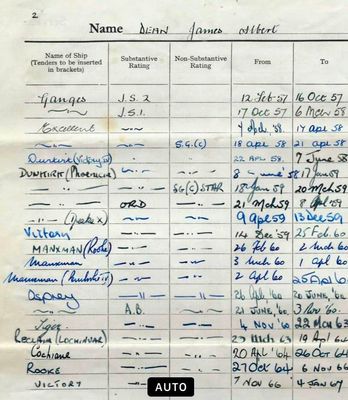 2
Name DEAN James Albert
Name of Ship (Tenders to be inserted in brackets) Substantive Rating Non-Substantive Rating From To
Ganges J.S.2 12 Feb 57 16 Oct 57
—"— J.S.1. 17 Oct 57 6 Mch 58
Excellent —"— 7 Apl 58 17 Apl 58
—"— —"— S.G.(C) 18 Apl 58 21 Apl 58
Dunkirk (Victory IV) —"— —"— 22 APL 58 7 June 58
DUNKIRK (PHOENICIA) —"— —"— 8 June 58 17 Jan 59
—"— —"— SG(C) STAR 18 Jan 59 20 Mch 59
—"— ORD —"— 21 Mch 59 8 Apl 59
—"— (Drake X) —"— —"— 9 Apl 59 13 Dec 59
Victory —"— —"— 14 Dec '59 25 Feb 60
MANXMAN (Rooke) —"— —"— 26 Feb 60 2 Mch 60
Manxman —"— —"— 3 Mch 60 1 Apl 60
Manxman —"— —"— 2 Apl 60 25 Apl 60
Osprey —"— —"— 26 Apl '60 20 JUNE, 60
—"— A.B. —"— 21 JUNE, 60 3 Nov 60
Tiger —"— —"— 4 NOV 60 22 Mch 63
RECLAIM (LOCHINVAR) —"— —"— 23 Mch 63 19 Apl 64
Cochrane —"— —"— 20 Apl '64 26 OCT 64
ROOKE —"— —"— 27 OCT 64 6 NOV 66
VICTORY —"— 7 NOV 66 4 Jan 67
AUTO